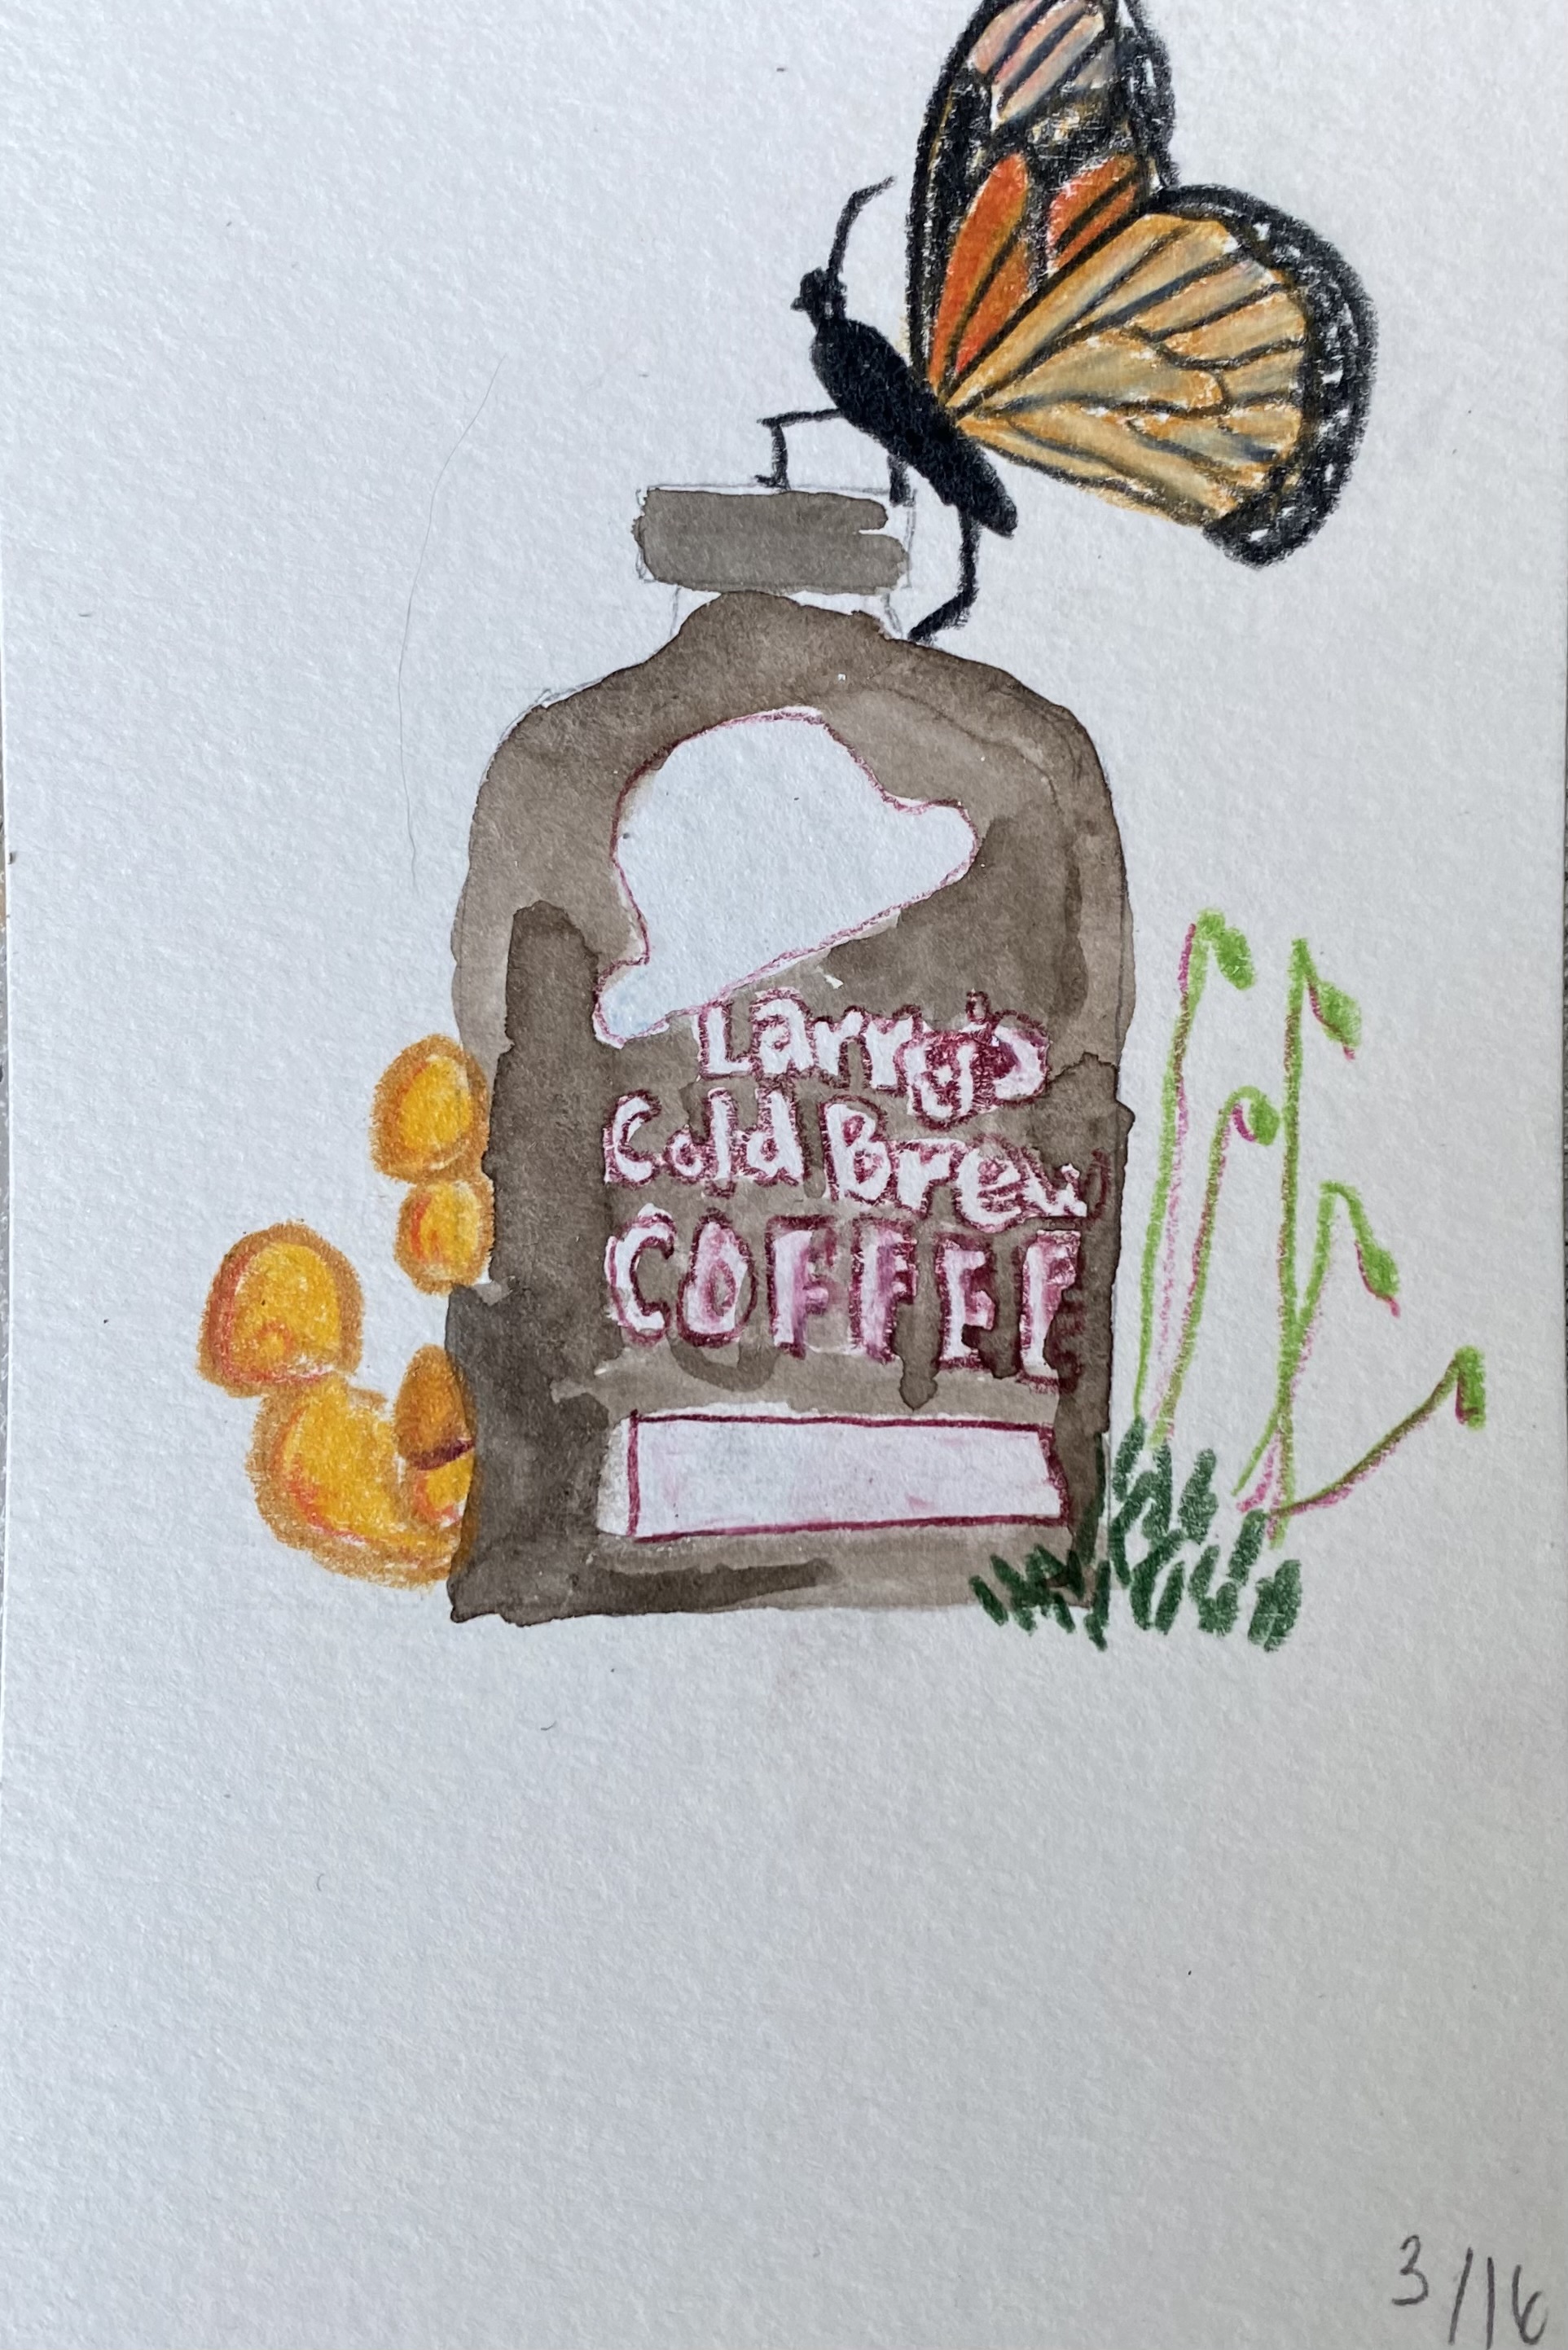 Larry's
Cold Brew
COFFEE
3/16